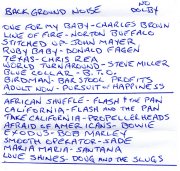 BACKGROUND NOISE
NO DOLBY
ONE FOR MY BABY - CHARLES BROWN
LINE OF FIRE - NORTON BUFFALO
STITCHED UP - JOHN MAYER
RUBY BABY - DONALD FAGEN
TEXAS - CHRIS REA
WORLD TURN AROUND - STEVE MILLER
BLUE COLLAR - B.T.O.
BIRDMAN - BARSTOOL PROFITS
ADULT NOW - PURSUIT OF HAPPINESS
AFRICAN SHUFFLE - FLASH & THE PAN
CALIFORNIA - FLASH AND THE PAN
TAKE CALIFORNIA - PROPELLERHEADS
AFRAID OF AMERICANS - BOWIE
EXODUS - BOB MARLEY
SMOOTH OPERATOR - SADE
MARIA MARIA - SANTANA
LOVE SHINES - DOUG AND THE SLUGS